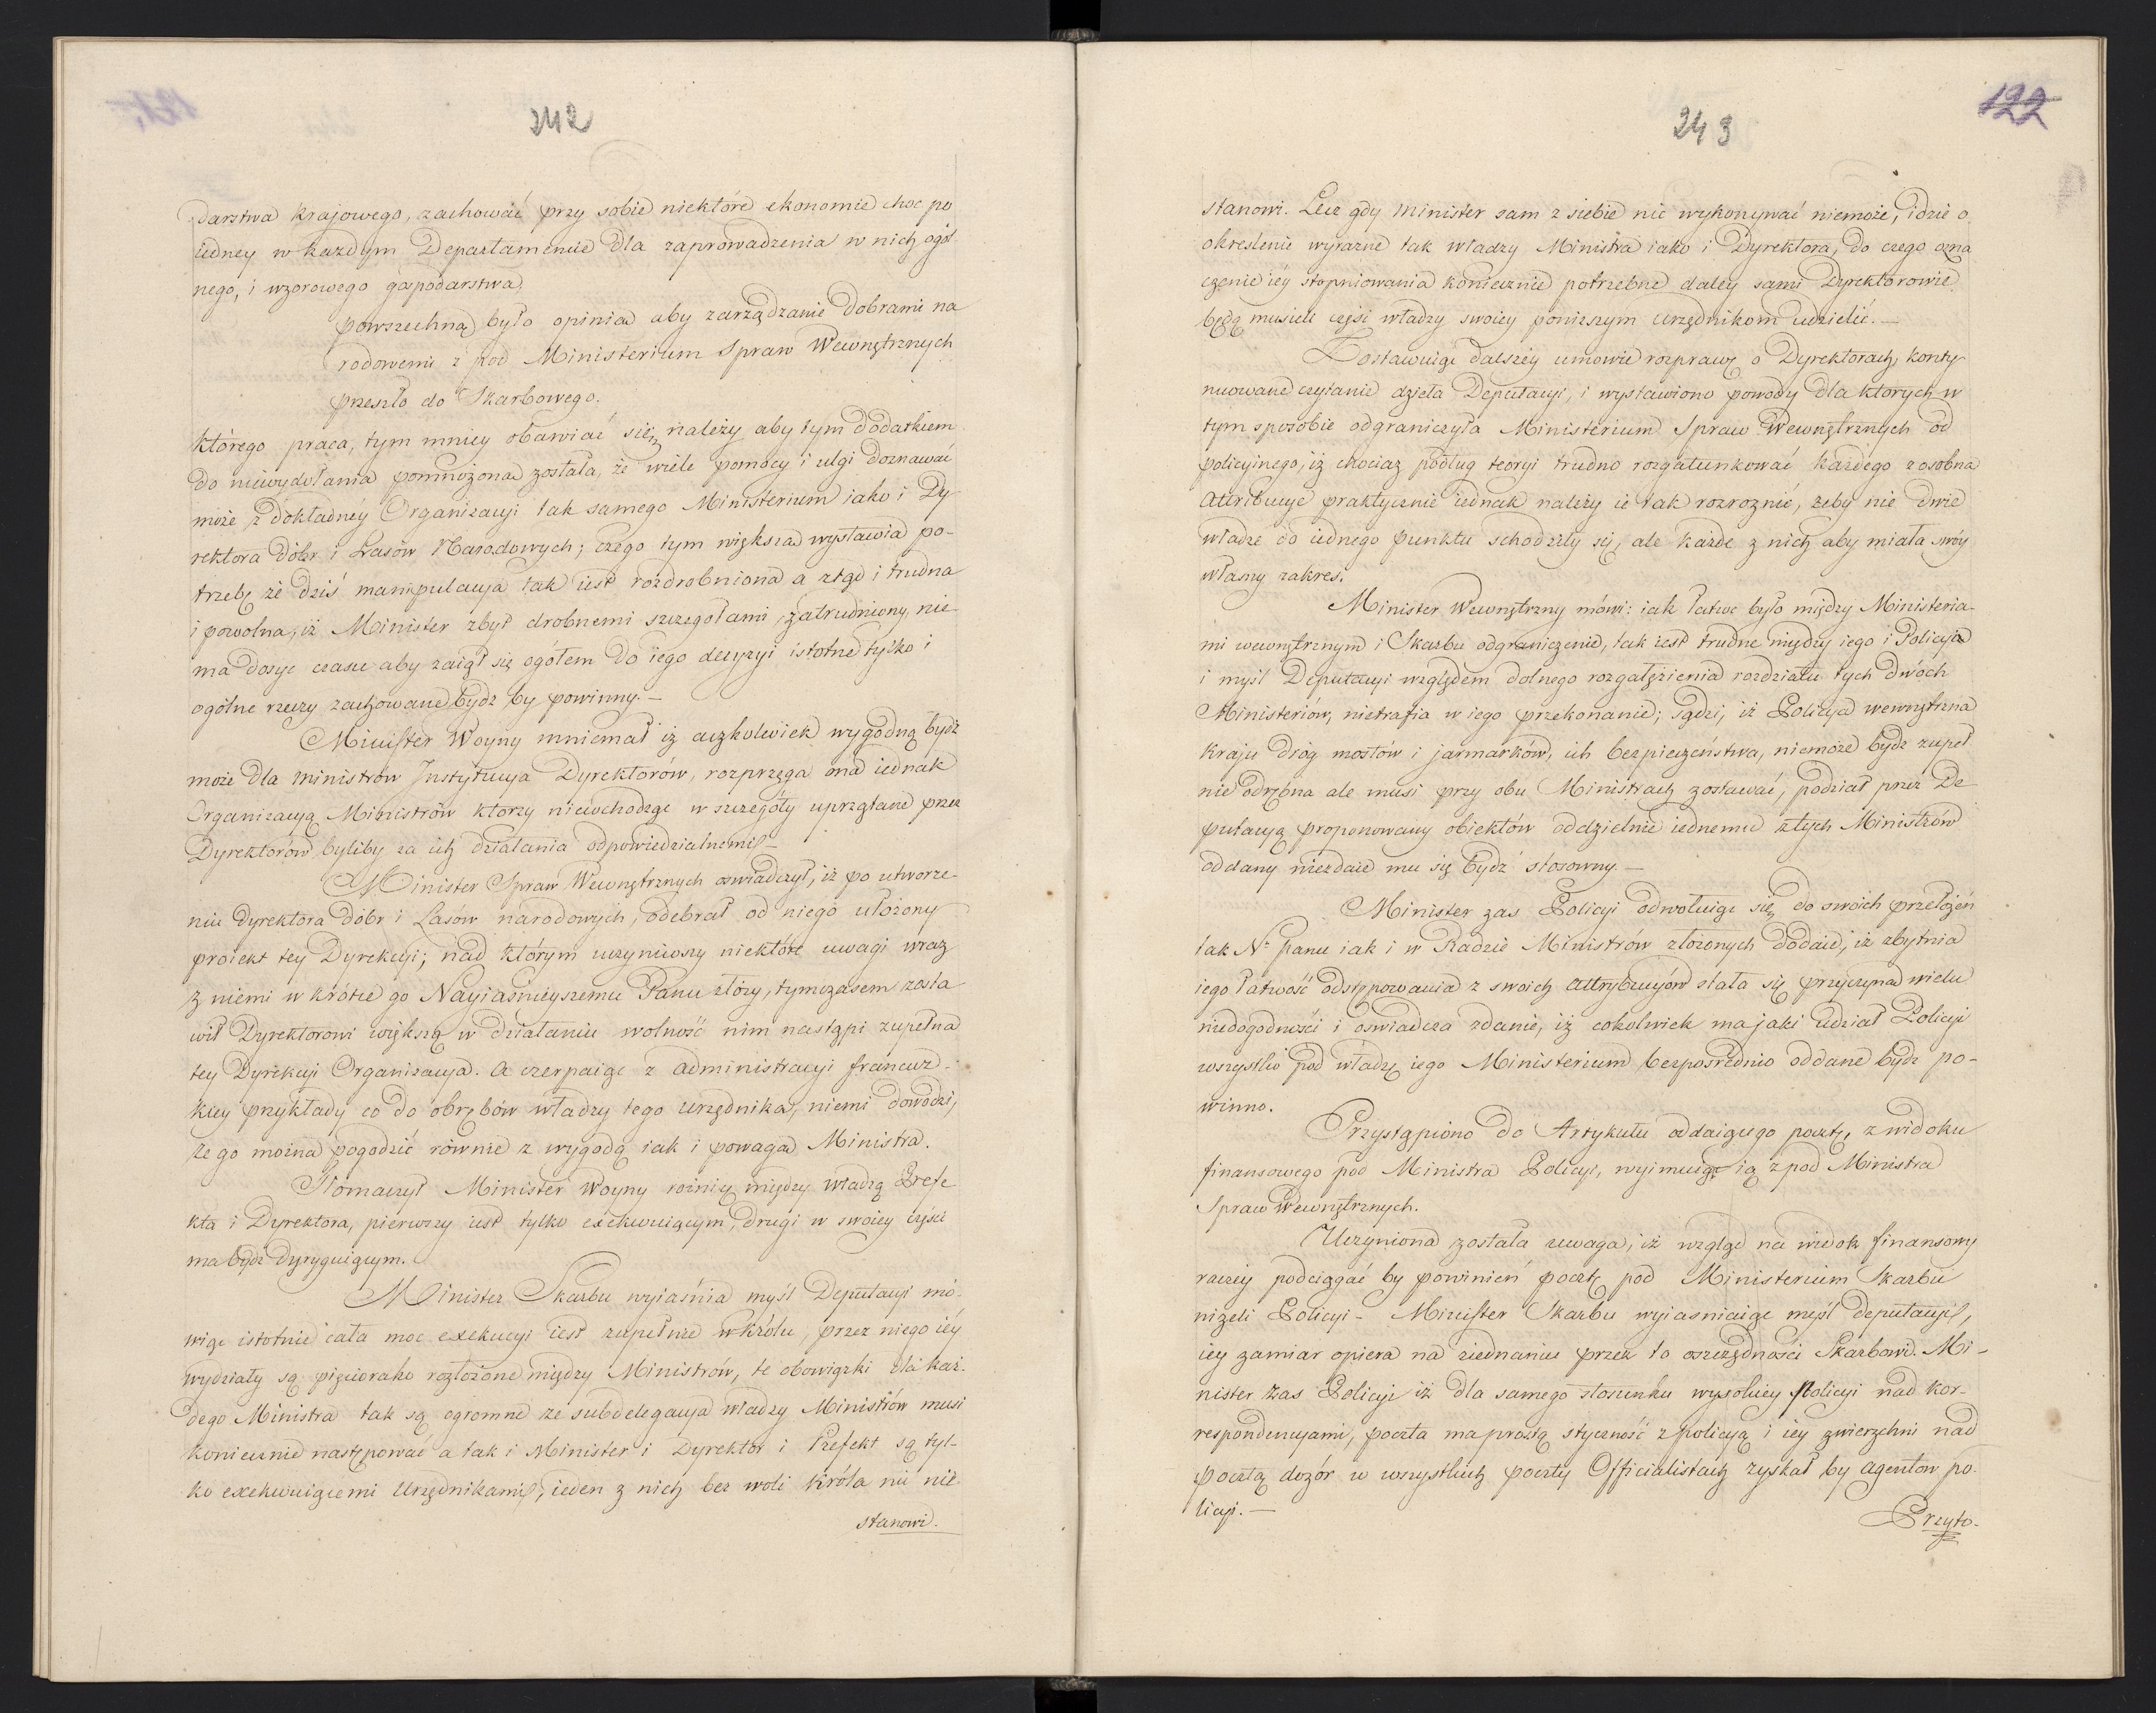 242
darstwa krajowego, zachować przy sobie niektóre ekonomie choc po
iedney w każdym Departamencie dla zaprowadzenia w nich ogól
nego, i wzorowego gospodarstwa.
powszechną było opinia aby zarządzanie Dobrami na
rodowemi z pod Ministerium Spraw Wewnętrznych
przeszło do Skarbowego.
którego praca, tym mniey obawiać się należy aby tym dodatkiem
do niewydołania pomnożona została, że wiele pomocy i ulgi doznawać
może z dokładnéy Organizacyi tak samego Ministerium iako i Dy
rektora Dóbr i Lasów Narodowych; czego tym większa wystawia po-
trzebę że dziś manipulacya tak iest rozdrobniona a ztąd i trudna
i powolna, iż Minister zbyt drobnemi szczegołami zatrudniony, nie
ma dosyc czasu aby zaiął się ogółem do iego decyzyi istotne tylko i
ogólne rzeczy zachowane bydz by powinny. –
Minister Woyny mniemał iż aczkolwiek wygodną bydź
może dla Ministrów Instytucya Dyrektorów, rozprzęga ona iednak
Organizacyą Ministrów ktorzy niewchodząc w szczegóły uprzątane przez
Dyrektorów byliby za ich działania odpowiedzialnemi –
Minister Spraw Wewnętrznych oswiadczył, iż po utworze-
niu Dyrektora dóbr i Lasów narodowych, odebrał od niego ułożony
proiekt tey Dyrekcyi; nad którym uczyniwszy niektóre uwagi wraz
z niemi w krótce go Nayiaśnieyszemu Panu złoży, tymczasem zosta
wił Dyrektorowi większą w działaniu wolność nim nastąpi zupełna
tey Dyrekcyi Organizacya. A czerpaiąc z administracyi francuz-
kiey przykłady co do obrębów władzy tego urzędnika, niemi dowodzi,
że go można pogodzić równie z wygodą iak i powaga Ministra.
Tłomaczył Minister Woyny róznicę między władzą Prefe
kta i Dyrektora, pierwszy iest tylko exekwuiącym, drugi w swoiey częsci
ma bydź dyryguiącym.
Minister Skarbu wyiaśnia myśl Deputacyi mó-
wiąc istotnie cała moc exekucyi iest zupełnie w królu, przez niego iéy
wydziały są pięciorako rozłożone między Ministrów, te obowiązki dla każ-
dego Ministra tak są ogromne że subdelegacya władzy Ministrów musi
koniecznie następować a tak i Minister i Dyrektor i Prefekt są tyl-
ko exekwuiącemi Urzędnikami, ieden z nich bez woli Króla nic nie
stanowi.
122
243
stanowi. Lecz gdy Minister sam z siebie nic wykonywać niemoże, idzie o
okreslenie wyrazne tak władzy Ministra iako i Dyrektora, do czego ozna
czenie iéy stopniowania koniecznie potrzebne daléy sami Dyrektorowie
będą musieli częsć władzy swoiéy poniższym urzędnikom udzielić. –
Zostawuiąc dalszéy umowie rozprawę o Dyrektorach, konty
nuowane czytanie dzieła Deputacyi, i wystawiono powody dla ktorych w
tym sposobie odgraniczyła Ministerium Spraw Wewnętrznych od
policyinego, iż chociaz podług teoryi trudno rozgatunkować każdego z osobna
attribucye praktycznie iednak należy ie tak rozroznić, żeby nie dwie
władze do iednego punktu schodziły się, ale każde z nich aby miała swóy
własny zakres.
Minister Wewnętrzny mówi: iak łatwe było między Ministeria-
mi wewnętrznym i Skarbu odgraniczenie, tak iest trudne między iego i Policyja
i myśl Deputacyi względem dolnego rozgałęzienia rozdziału tych dwóch
Ministeriów, nietrafia w iego przekonanie; sądzi, iż Policyja wewnętrzna
kraju dróg mostów i jarmarków, ich bezpieczeństwa, niemoże bydz zupeł
nie odrębna ale musi przy obu Ministrach zostawać, podział przez De
putacyą proponowany obiektów oddzielnie iednemu z tych Ministrów
oddany niezdaie mu się bydź stosowny. –
Minister zas Policyi odwołuiąc się do swoich przełożeń
tak N. Panu iak i w Radzie Ministrów złożonych dodaie, iż zbytnia
iego łatwość odstępowania z swoich attrybucyów stała się przyczyna wielu
niedogodności i oswiadcza zdanie, iż cokolwiek ma jaki udział Policyi
wszystko pod władzę iego Ministerium bezpośrednio oddane bydz po-
winno.
Przystąpiono do Artykułu oddaiącego pocztę, z widoku
finansowego pod Ministra Policyi, wyimuiąc ią z pod Ministra
Spraw Wewnętrznych.
Uczyniona została uwaga, iż wzgląd na widok finansowy
raczéy podciągać by powinień pocztę pod Ministerium Skarbu
niżeli Policyi – Minister Skarbu wyiasniaiąc myśl deputacyi,
iey zamiar opiera na ziednaniu przez to oszczędności Skarbowi. Mi-
nister zas Policyi iż dla samego stosunku wysokiey Policyi nad kor-
respondencyami, poczta ma prostą styczność z policyą i iéy zwierzchni nad
pocztą dozór w wszystkich poczty Officialistach zyskał by agentow po-
licyi. –
Przyto-